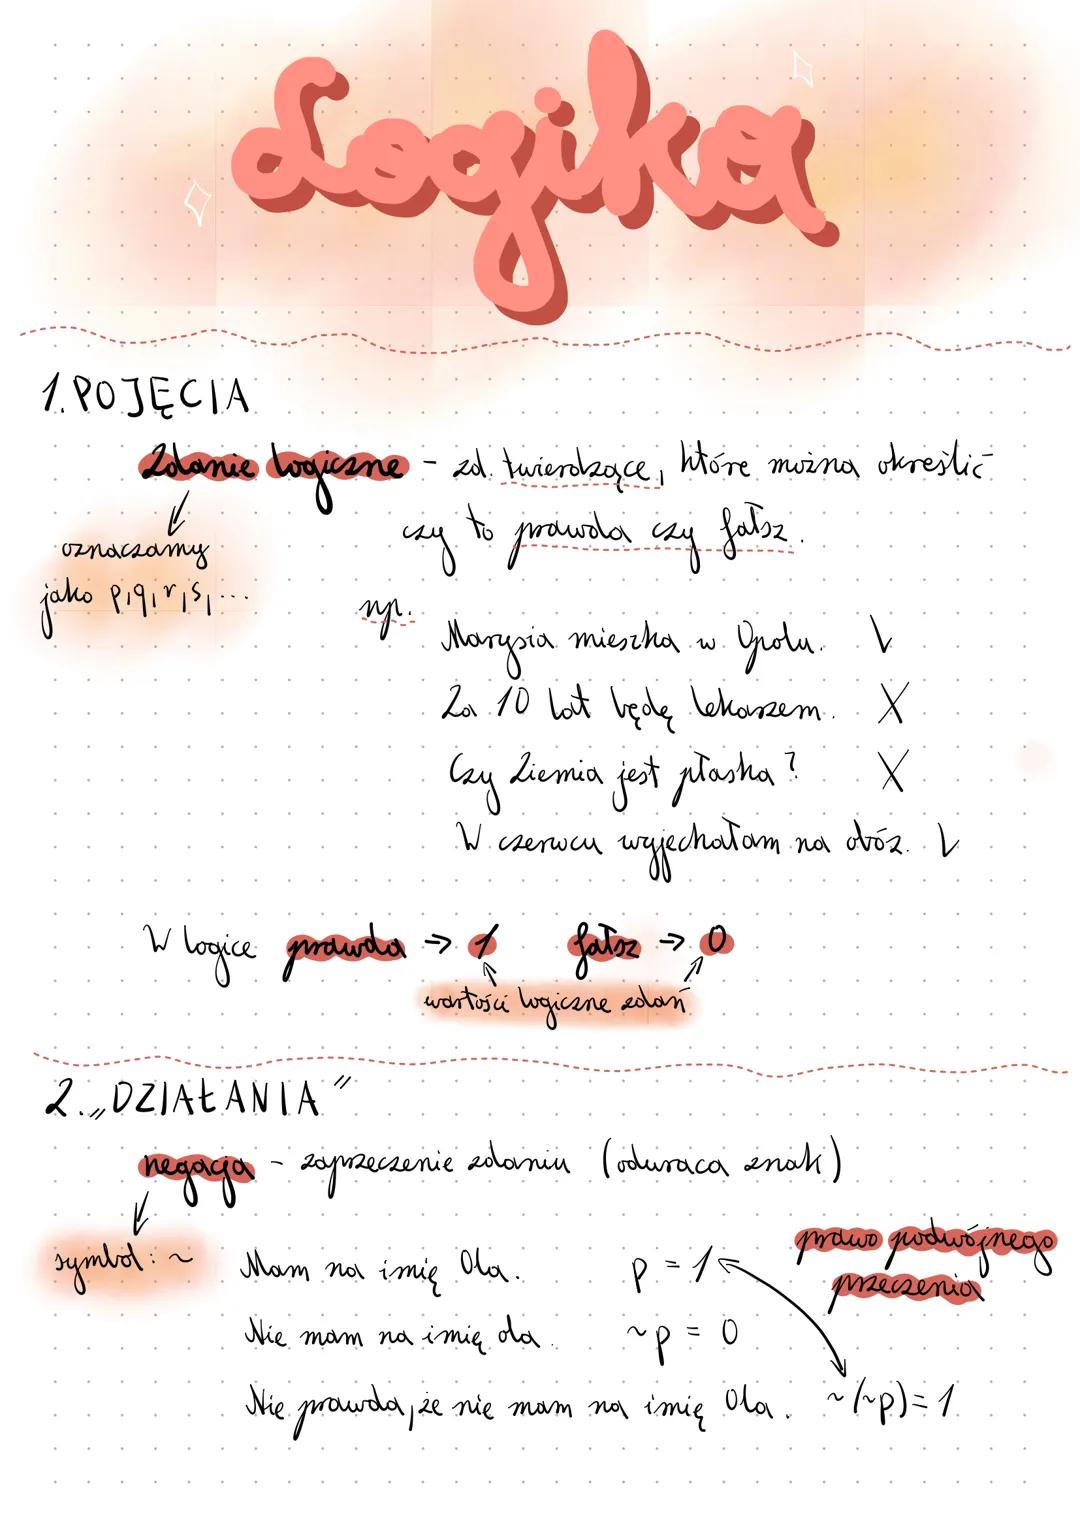 Logika
1. POJĘCIA
Zdanie logiczne - zd. twierdzące, które można określić
czy to prawda czy fałsz.
oznaczamy
jako p, q, r, s, ...
np.
Marysia mieszka w Opolu. V
Za 10 lat będę lekarzem. X
Czy Ziemia jest płaska? X
W czerwcu wyjechałam na obóz. V
W logice prawda → 1 fałsz → 0
wartości logiczne zdań
2. „DZIAŁANIA"
negacja - zaprzeczenie zdaniu (odwraca znak)
symbol: ~
Mam na imię Ola. p = 1
Nie mam na imię ola. ~p = 0
Nie prawda, że nie mam na imię Ola. ~(~p) = 1
prawo podwójnego
przeczenia